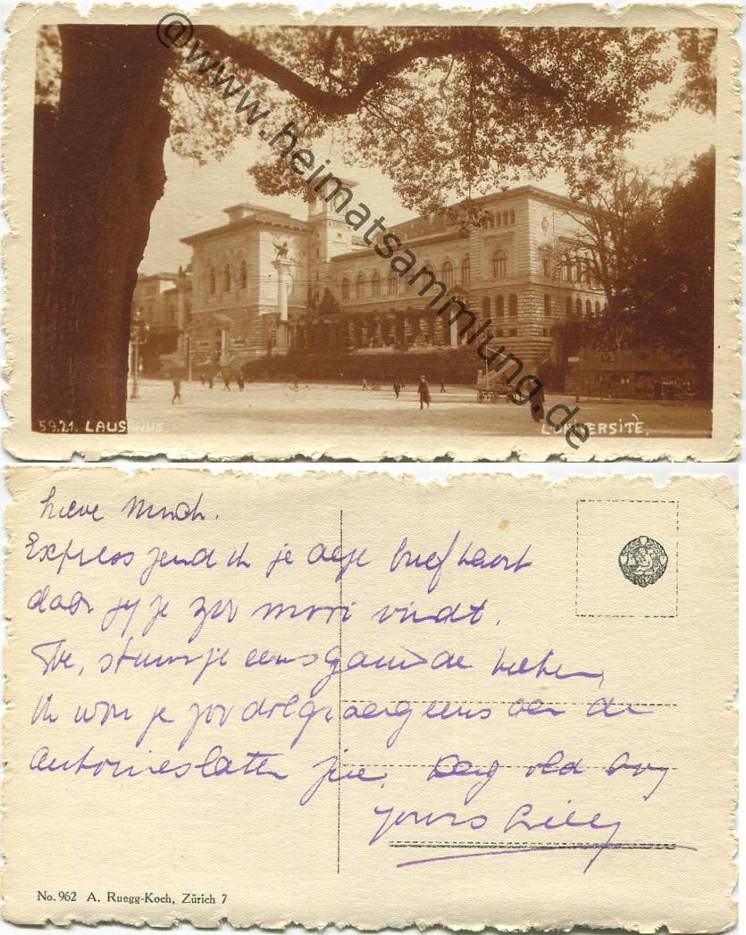 @www.heimatsammlung.de
59.21. LAUSANNE.
L'UNIVERSITÈ.
Lieve
Express zend ik je deze briefkaart
daar jij je zoo mooi vindt.
Toe, stuur je eens gauw de
Ik wou je zoo dolgraag eens aan de
zien. old boy
yours Lilly
No. 962 A. Ruegg-Koch, Zürich 7